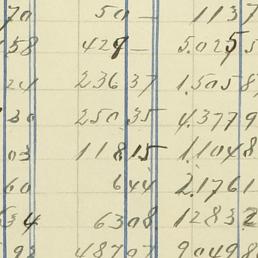 70 50 — 1137
58 429 — 5.0255
24 236 37 1.5058
30 250.35 4.3779
03 118 15 1.1048
60 6 44 2.1761
534 63 08 12832
98 487 07 90498